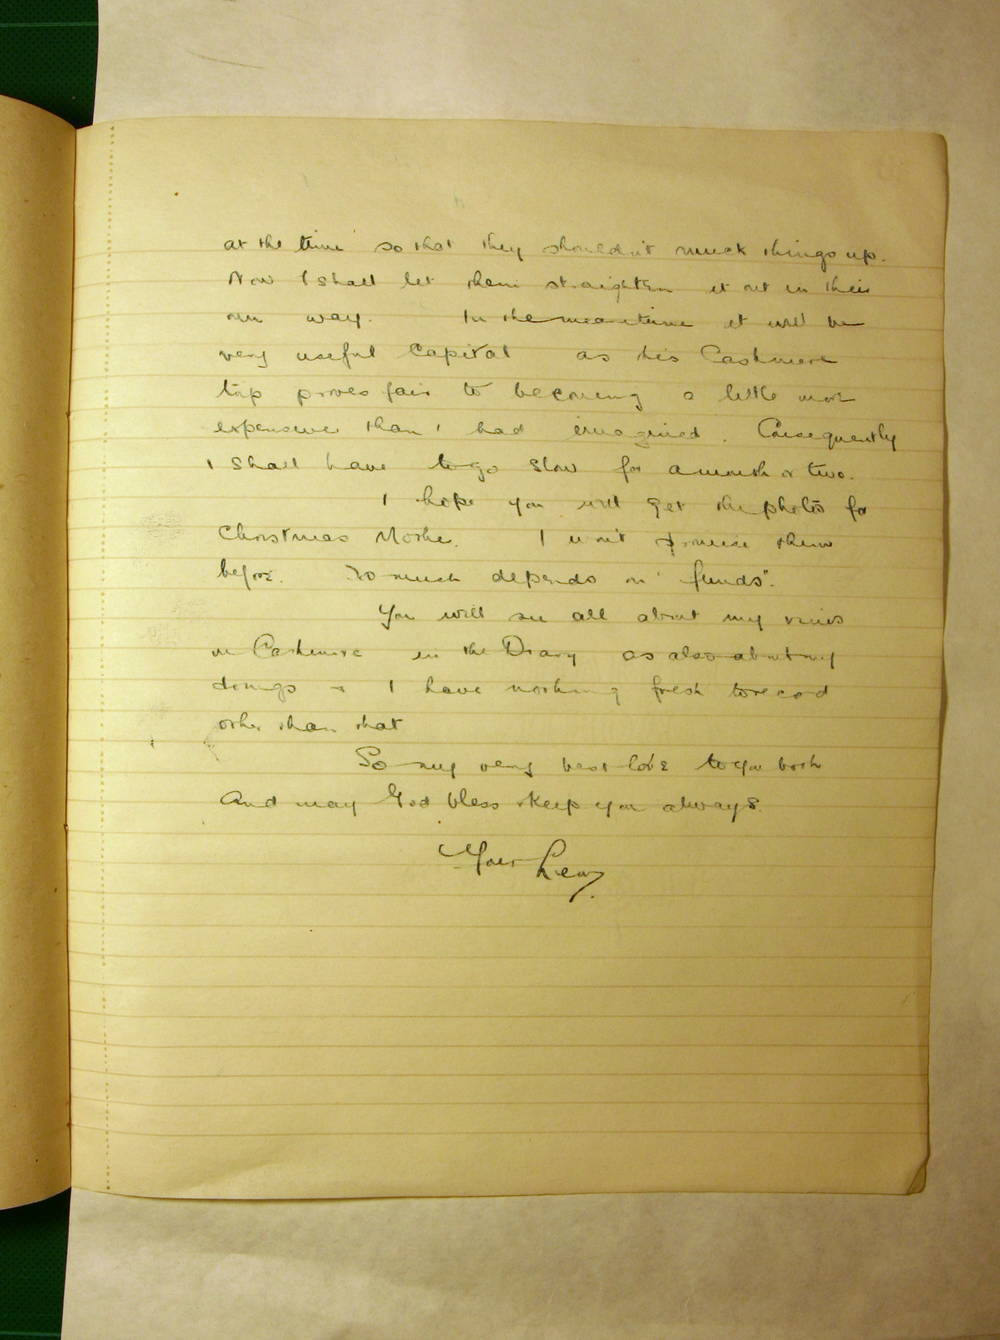 at the time so that they shouldn't muck things up.
Now I shall let them straighten it out in their
own way. In the meantime it will be
very useful capital as this Cashmere
trip proves fair to becoming a little more
expensive than I had imagined. Consequently
I shall have to go slow for a month or two.
I hope you will get the photos for
Christmas Mother. I won't promise them
before. So much depends on "funds".
You will see all about my views
on Cashmere in the Diary as also about my
doings & I have nothing fresh to record
other than that
So my very best love to you both
And may God bless & keep you always.
Your